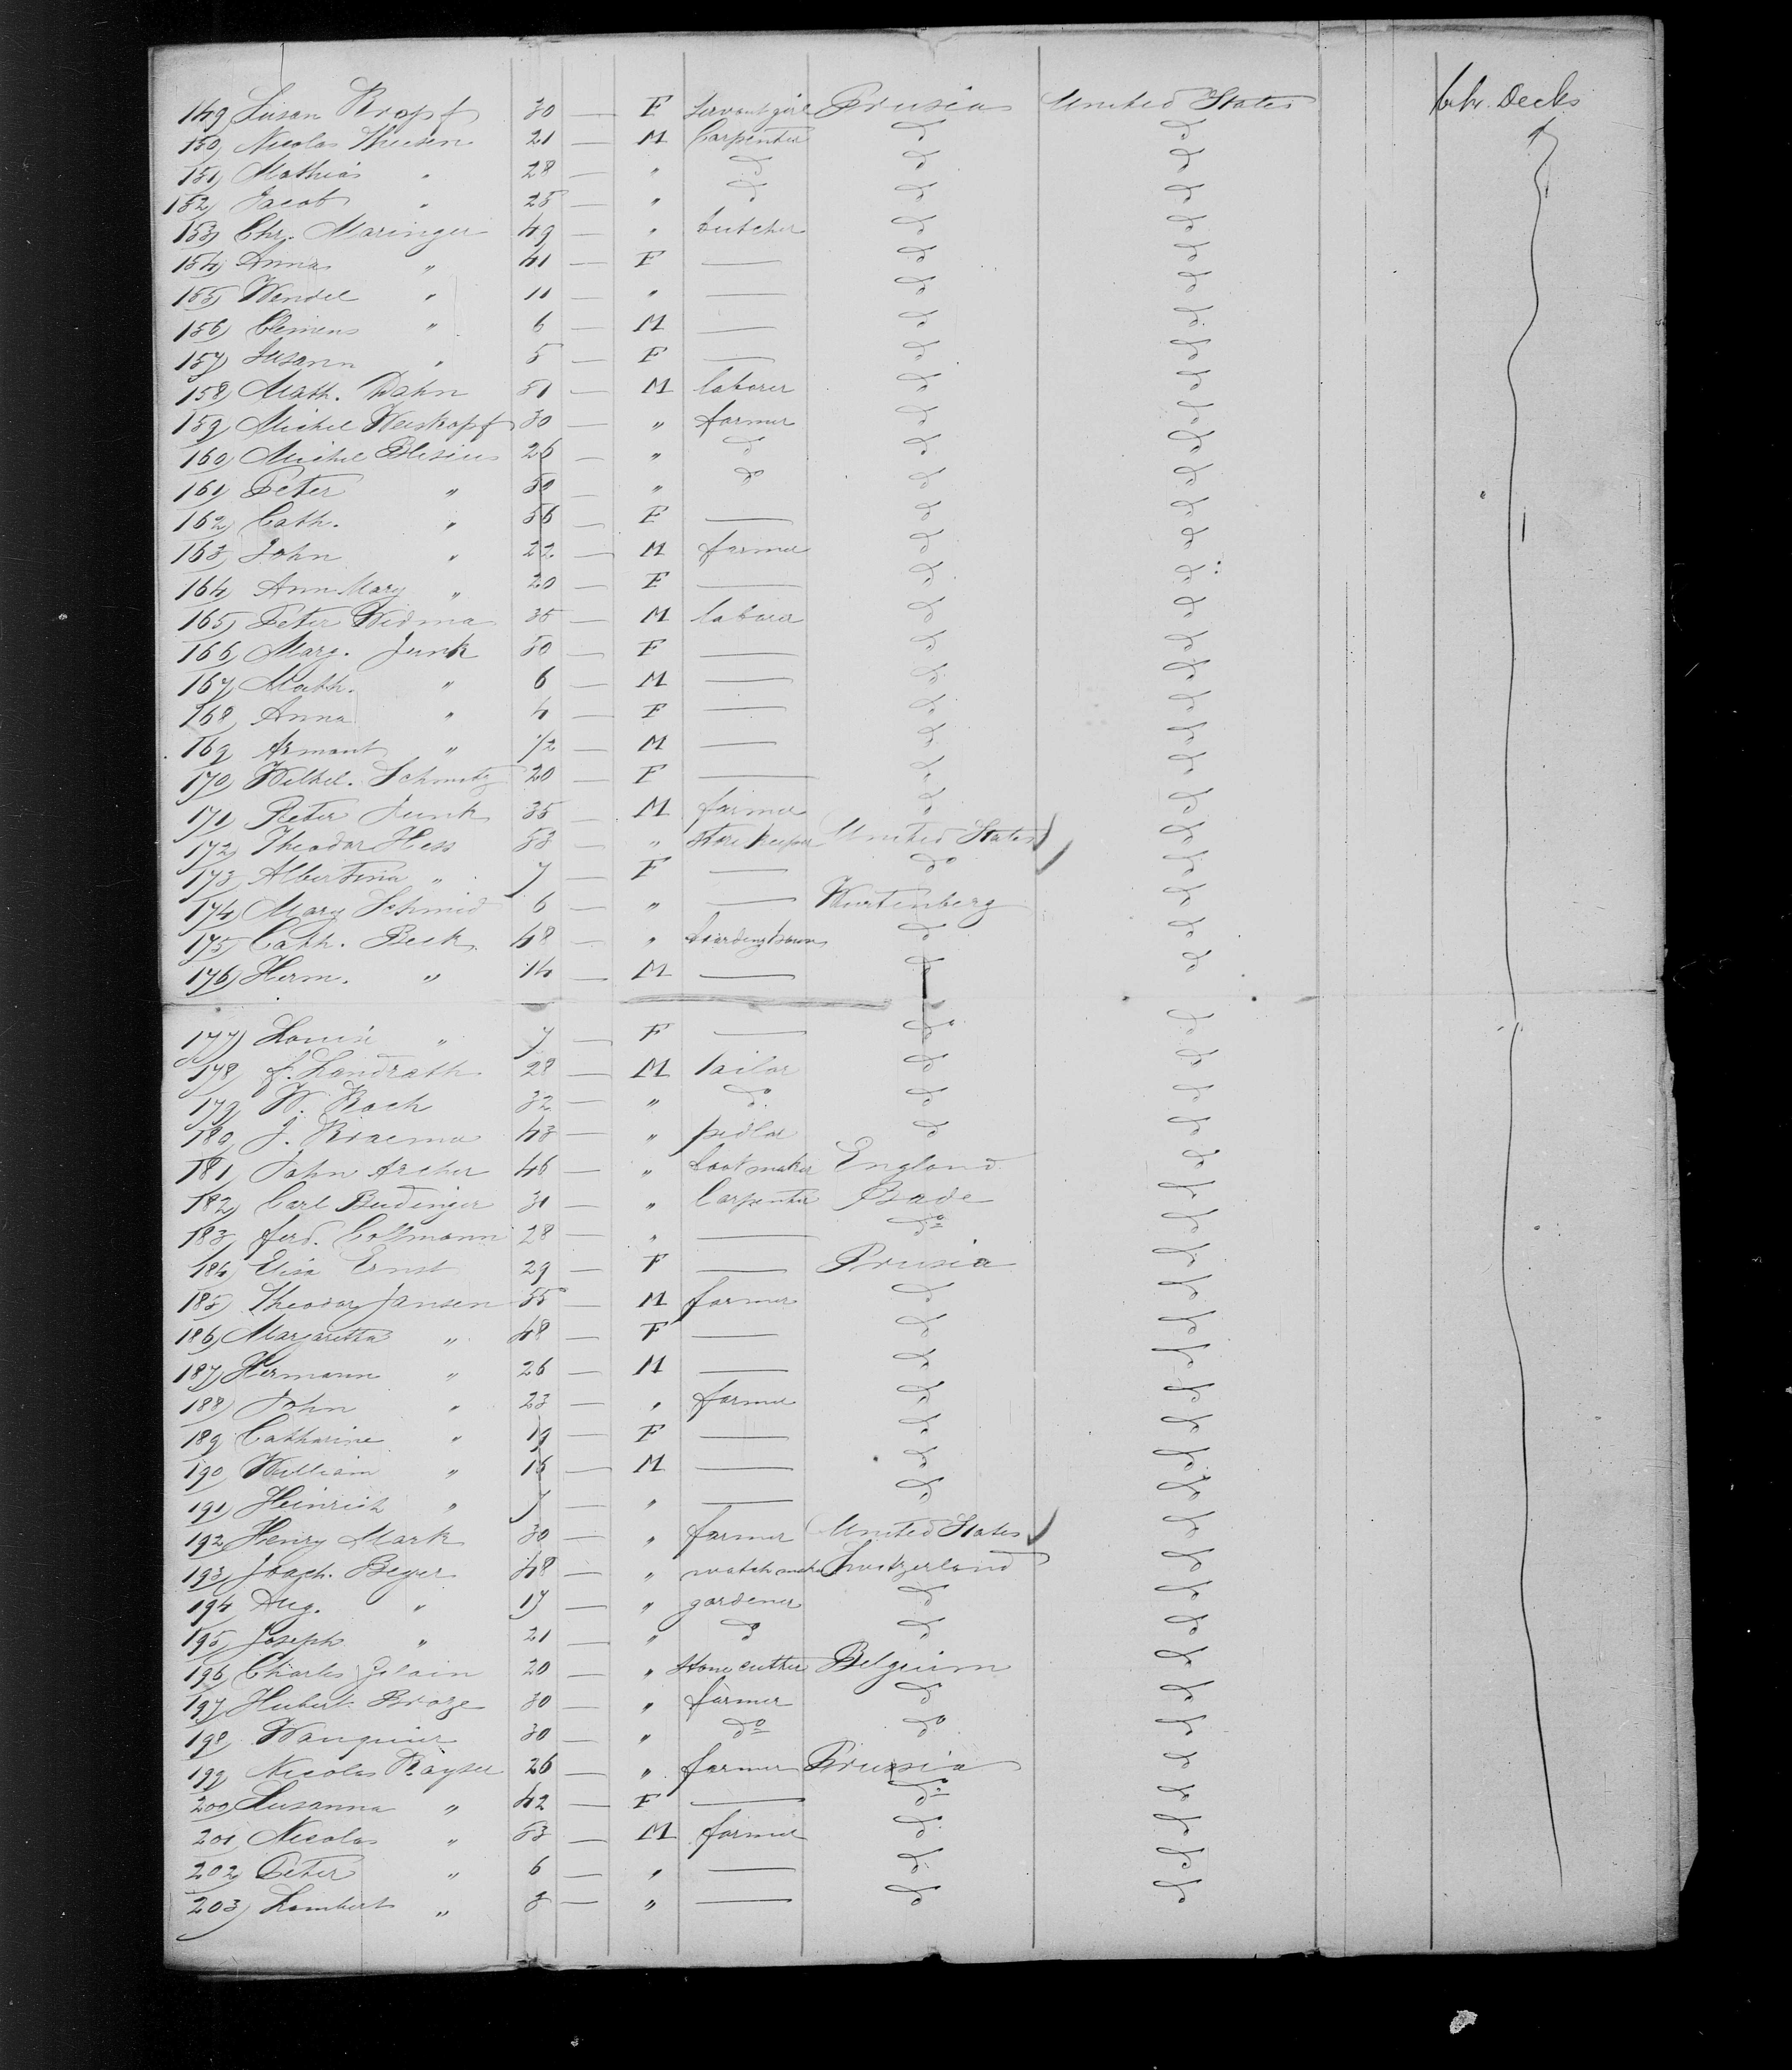 149 Susan Kropf 30 — F Servant girl Prusia United States betw. Decks
150 Nicolas Theisen 21 — M Carpenter do do
151 Mathias " 28 — " do do do
152 Jacob " 25 — " do do do
153 Chr. Maringer 49 — " butcher do do
154 Anna " 41 — F — do do
155 Wendel " 11 — " — do do
156 Clemens " 6 — M — do do
157 Susann " 5 — F — do do
158 Math. Dahn 51 — M laborer do do
159 Michel Weiskopf 30 — " farmer do do
160 Michel Blesius 26 — " do do do
161 Peter " 50 — " do do do
162 Cath. " 56 — F — do do
163 John " 22 — M farmer do do
164 Ann Mary " 20 — F — do do
165 Peter Widma 35 — M laborer do do
166 Marg. Junk 50 — F — do do
167 Math. " 6 — M — do do
168 Anna " 4 — F — do do
169 Armant " 1/2 — M — do do
170 Wilhel. Schmitz 20 — F — do do
171 Peter Junk 35 — M farmer do do
172 Theodor Hess 53 — " store keeper United States do
173 Albertina " 7 — F — do do
174 Mary Schmid 6 — " — Wurtenberg do
175 Cath. Beck 48 — " do do
176 Herm. " 14 — M — do do
177 Louise " 7 — F — do do
178 f. Landrath 28 — M tailor do do
179 W. Koch 32 — " do do do
180 J. Kraemer 43 — " pedlar do do
181 John Archer 46 — " bootmaker England do
182 Carl Budinger 31 — " Carpenter Bade do
183 ferd. Collmann 28 — " — do do
184 Elisa Ernst 29 — F — Prusia do
185 Theodor Jansen 55 — M farmer do do
186 Margaretta " 48 — F — do do
187 Hermann " 26 — M — do do
188 John " 23 — " farmer do do
189 Catharine " 19 — F — do do
190 William " 16 — M — do do
191 Heinrich " 7 — " — do do
192 Henry Mark 30 — " farmer United States do
193 Joach. Beyer 48 — " watchmaker Switzerland do
194 Aug. " 17 — " gardener do do
195 Joseph " 21 — " do do do
196 Charles 20 — " Stone cutter Belgium do
197 Hubert Broze 30 — " farmer do do
198 Wauquier 30 — " do do do
199 Nicolas Kayser 26 — " farmer Prussia do
200 Susanna " 42 — F — do do
201 Nicolas " 53 — M farmer do do
202 Peter " 6 — " — do do
203 Lambert " 8 — " — do do